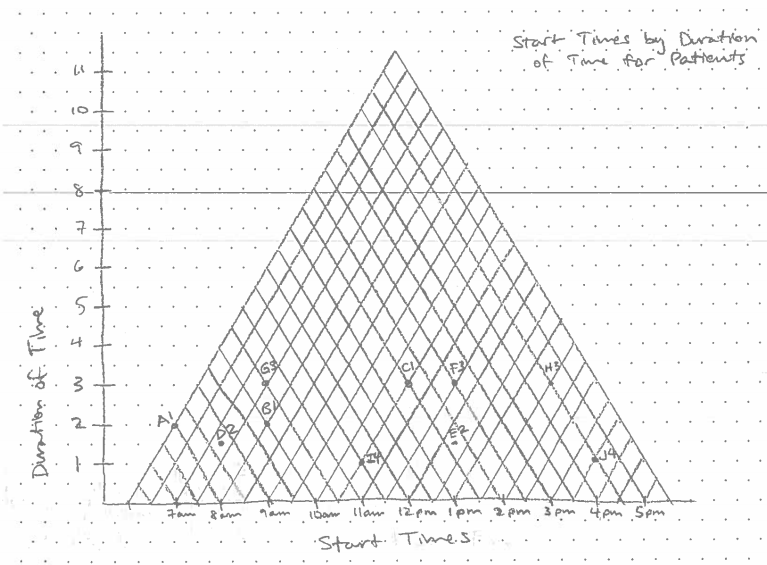 Start Times by Duration
of Time for Patients
11
10
9
8
7
6
5
4
3
2
1
Duration of Time
G3
C1
F3
H3
A1
B1
D2
E2
I4
J4
7am 8am 9am 10am 11am 12pm 1pm 2pm 3pm 4pm 5pm
Start Times